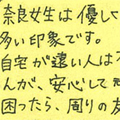 奈良女生は優し
多い印象です。
自宅が遠い人は
んが、安心して
困ったら、周りの友